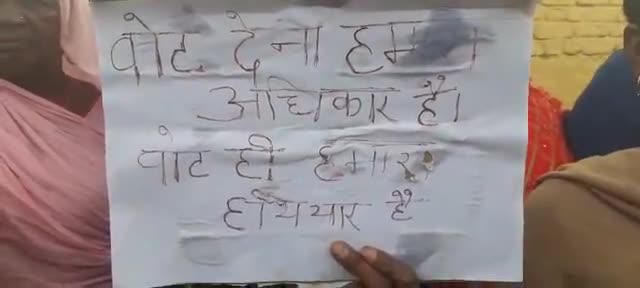 वोट देना हमारा
अधिकार है।
वोट ही हमारा
हथियार है